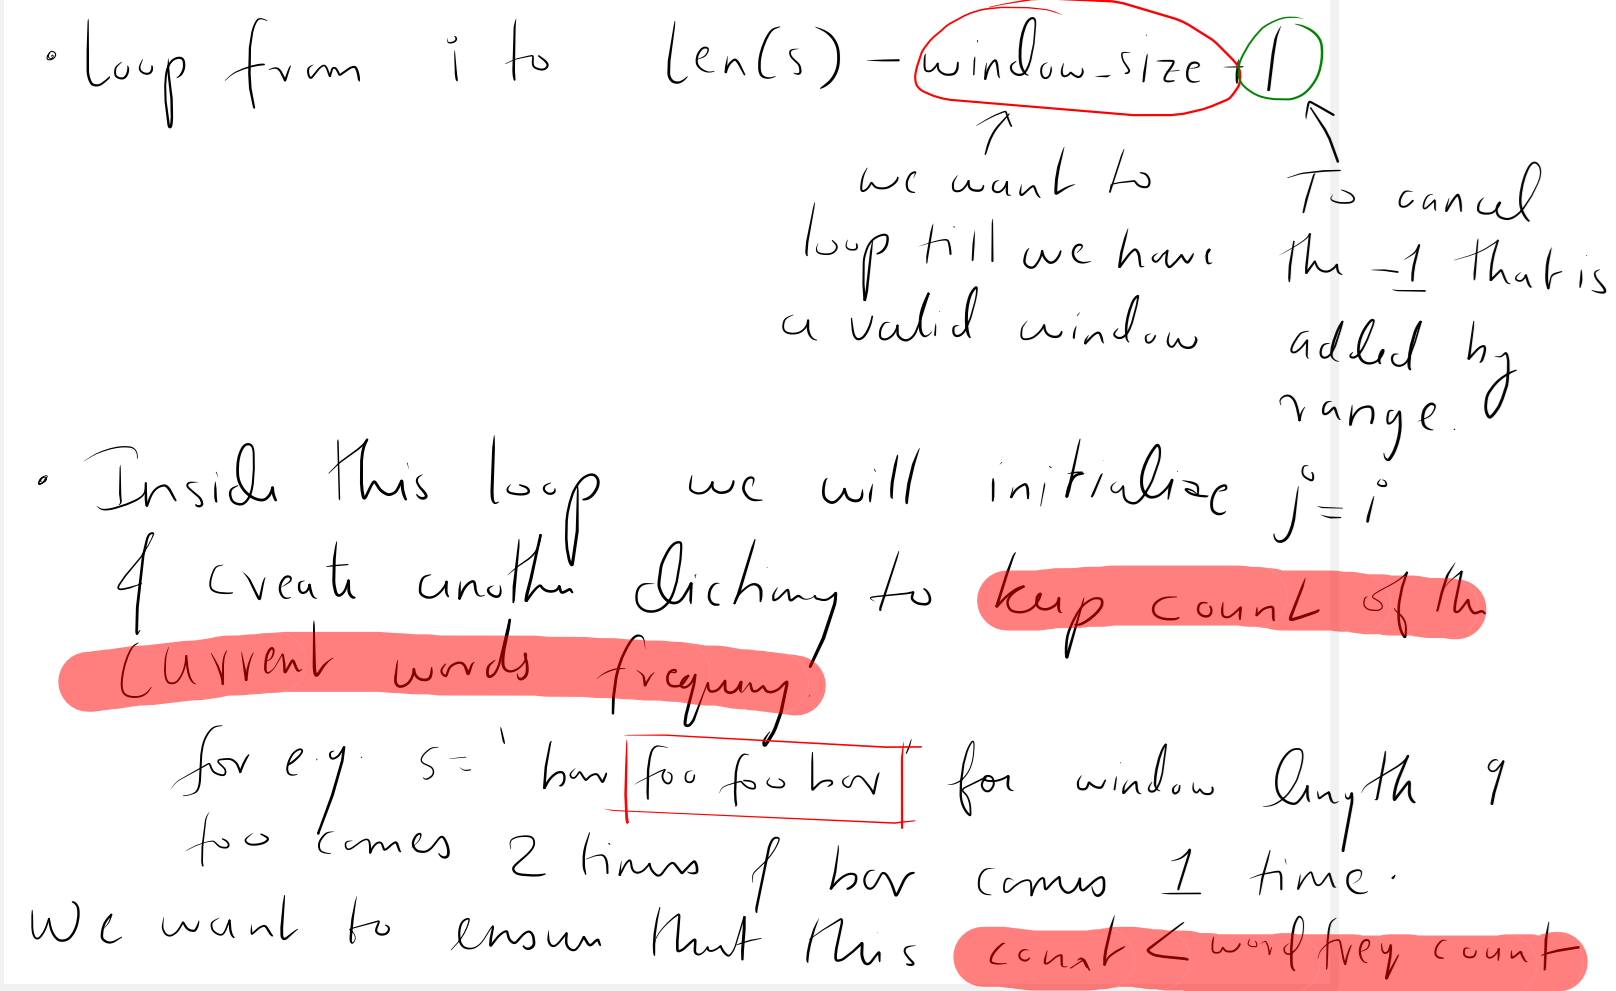 • Loop from i to len(s) - window_size + 1
we want to
loop till we have
a valid window
To cancel
the -1 that is
added by
range.
• Inside this loop we will initialize j = i
& create another dictionary to keep count of the
current words frequency.
for e.g. s = ' bar foo foo bar ' for window length 9
foo comes 2 times & bar comes 1 time.
We want to ensure that this count < word freq count